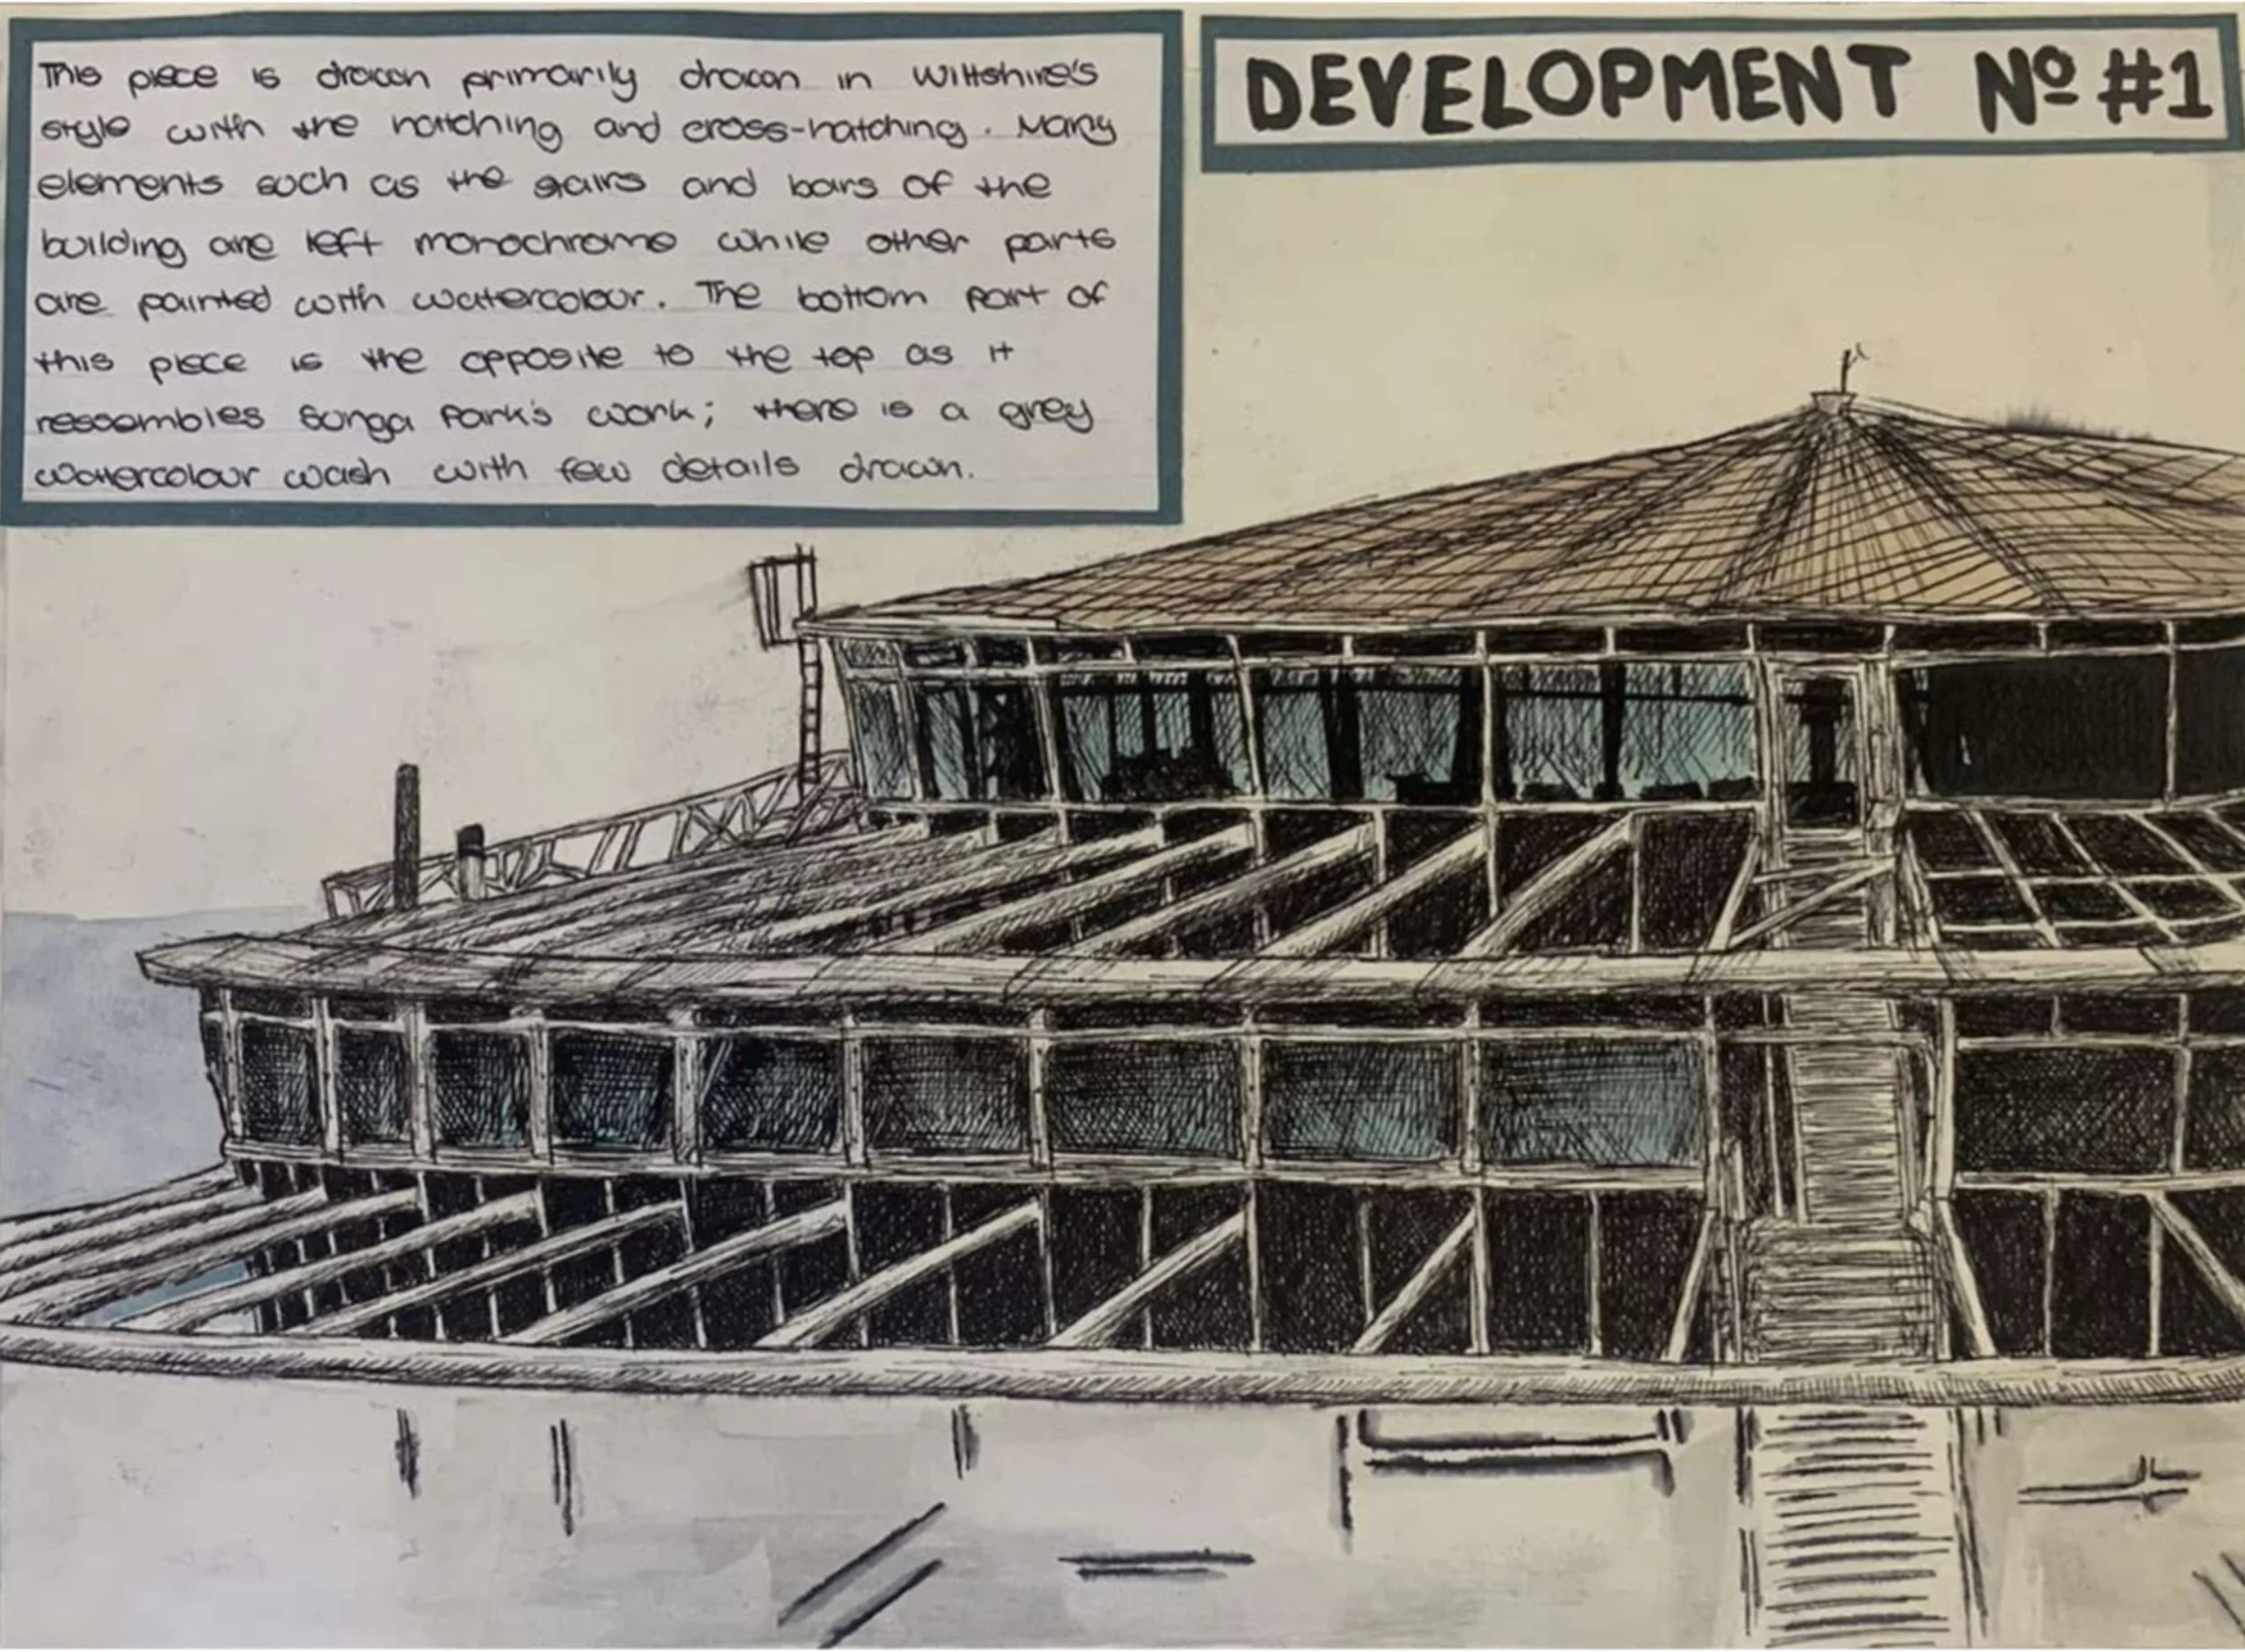 This piece is drawn primarily drawn in Wiltshire's
style with the hatching and cross-hatching. Many
elements such as the stairs and bars of the
building are left monochrome while other parts
are painted with watercolour. The bottom part of
this piece is the opposite to the top as it
ressembles Sunga Park's work; there is a grey
watercolour wash with few details drawn.
DEVELOPMENT Nº #1